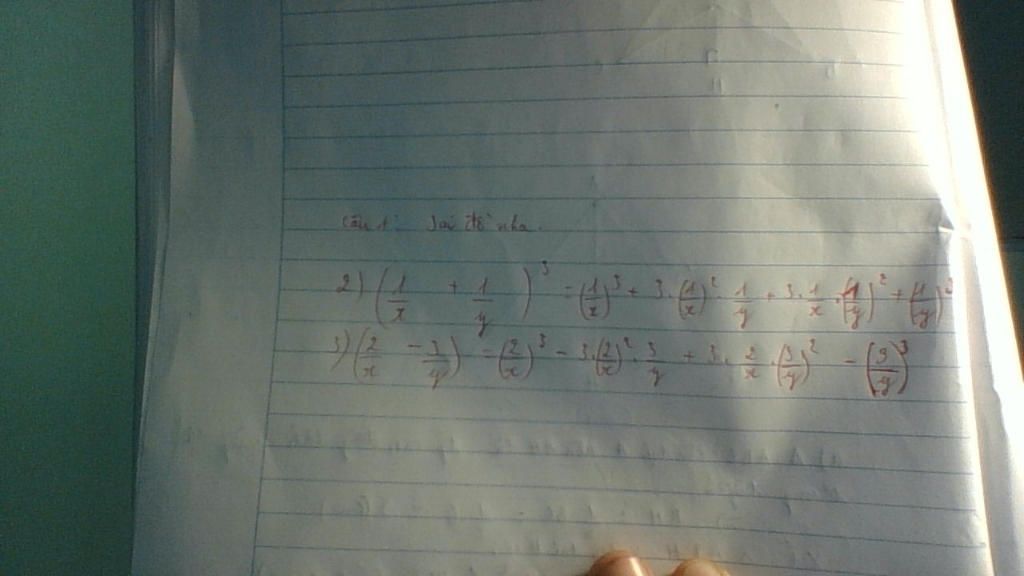 Câu 1: Sai đề nha.
2) (1/x + 1/y)³ = (1/x)³ + 3.(1/x)².1/y + 3.1/x.(1/y)² + (1/y)³
3) (2/x - 3/y) = (2/x)³ - 3.(2/x)².3/y + 3.2/x.(3/y)² - (3/y)³